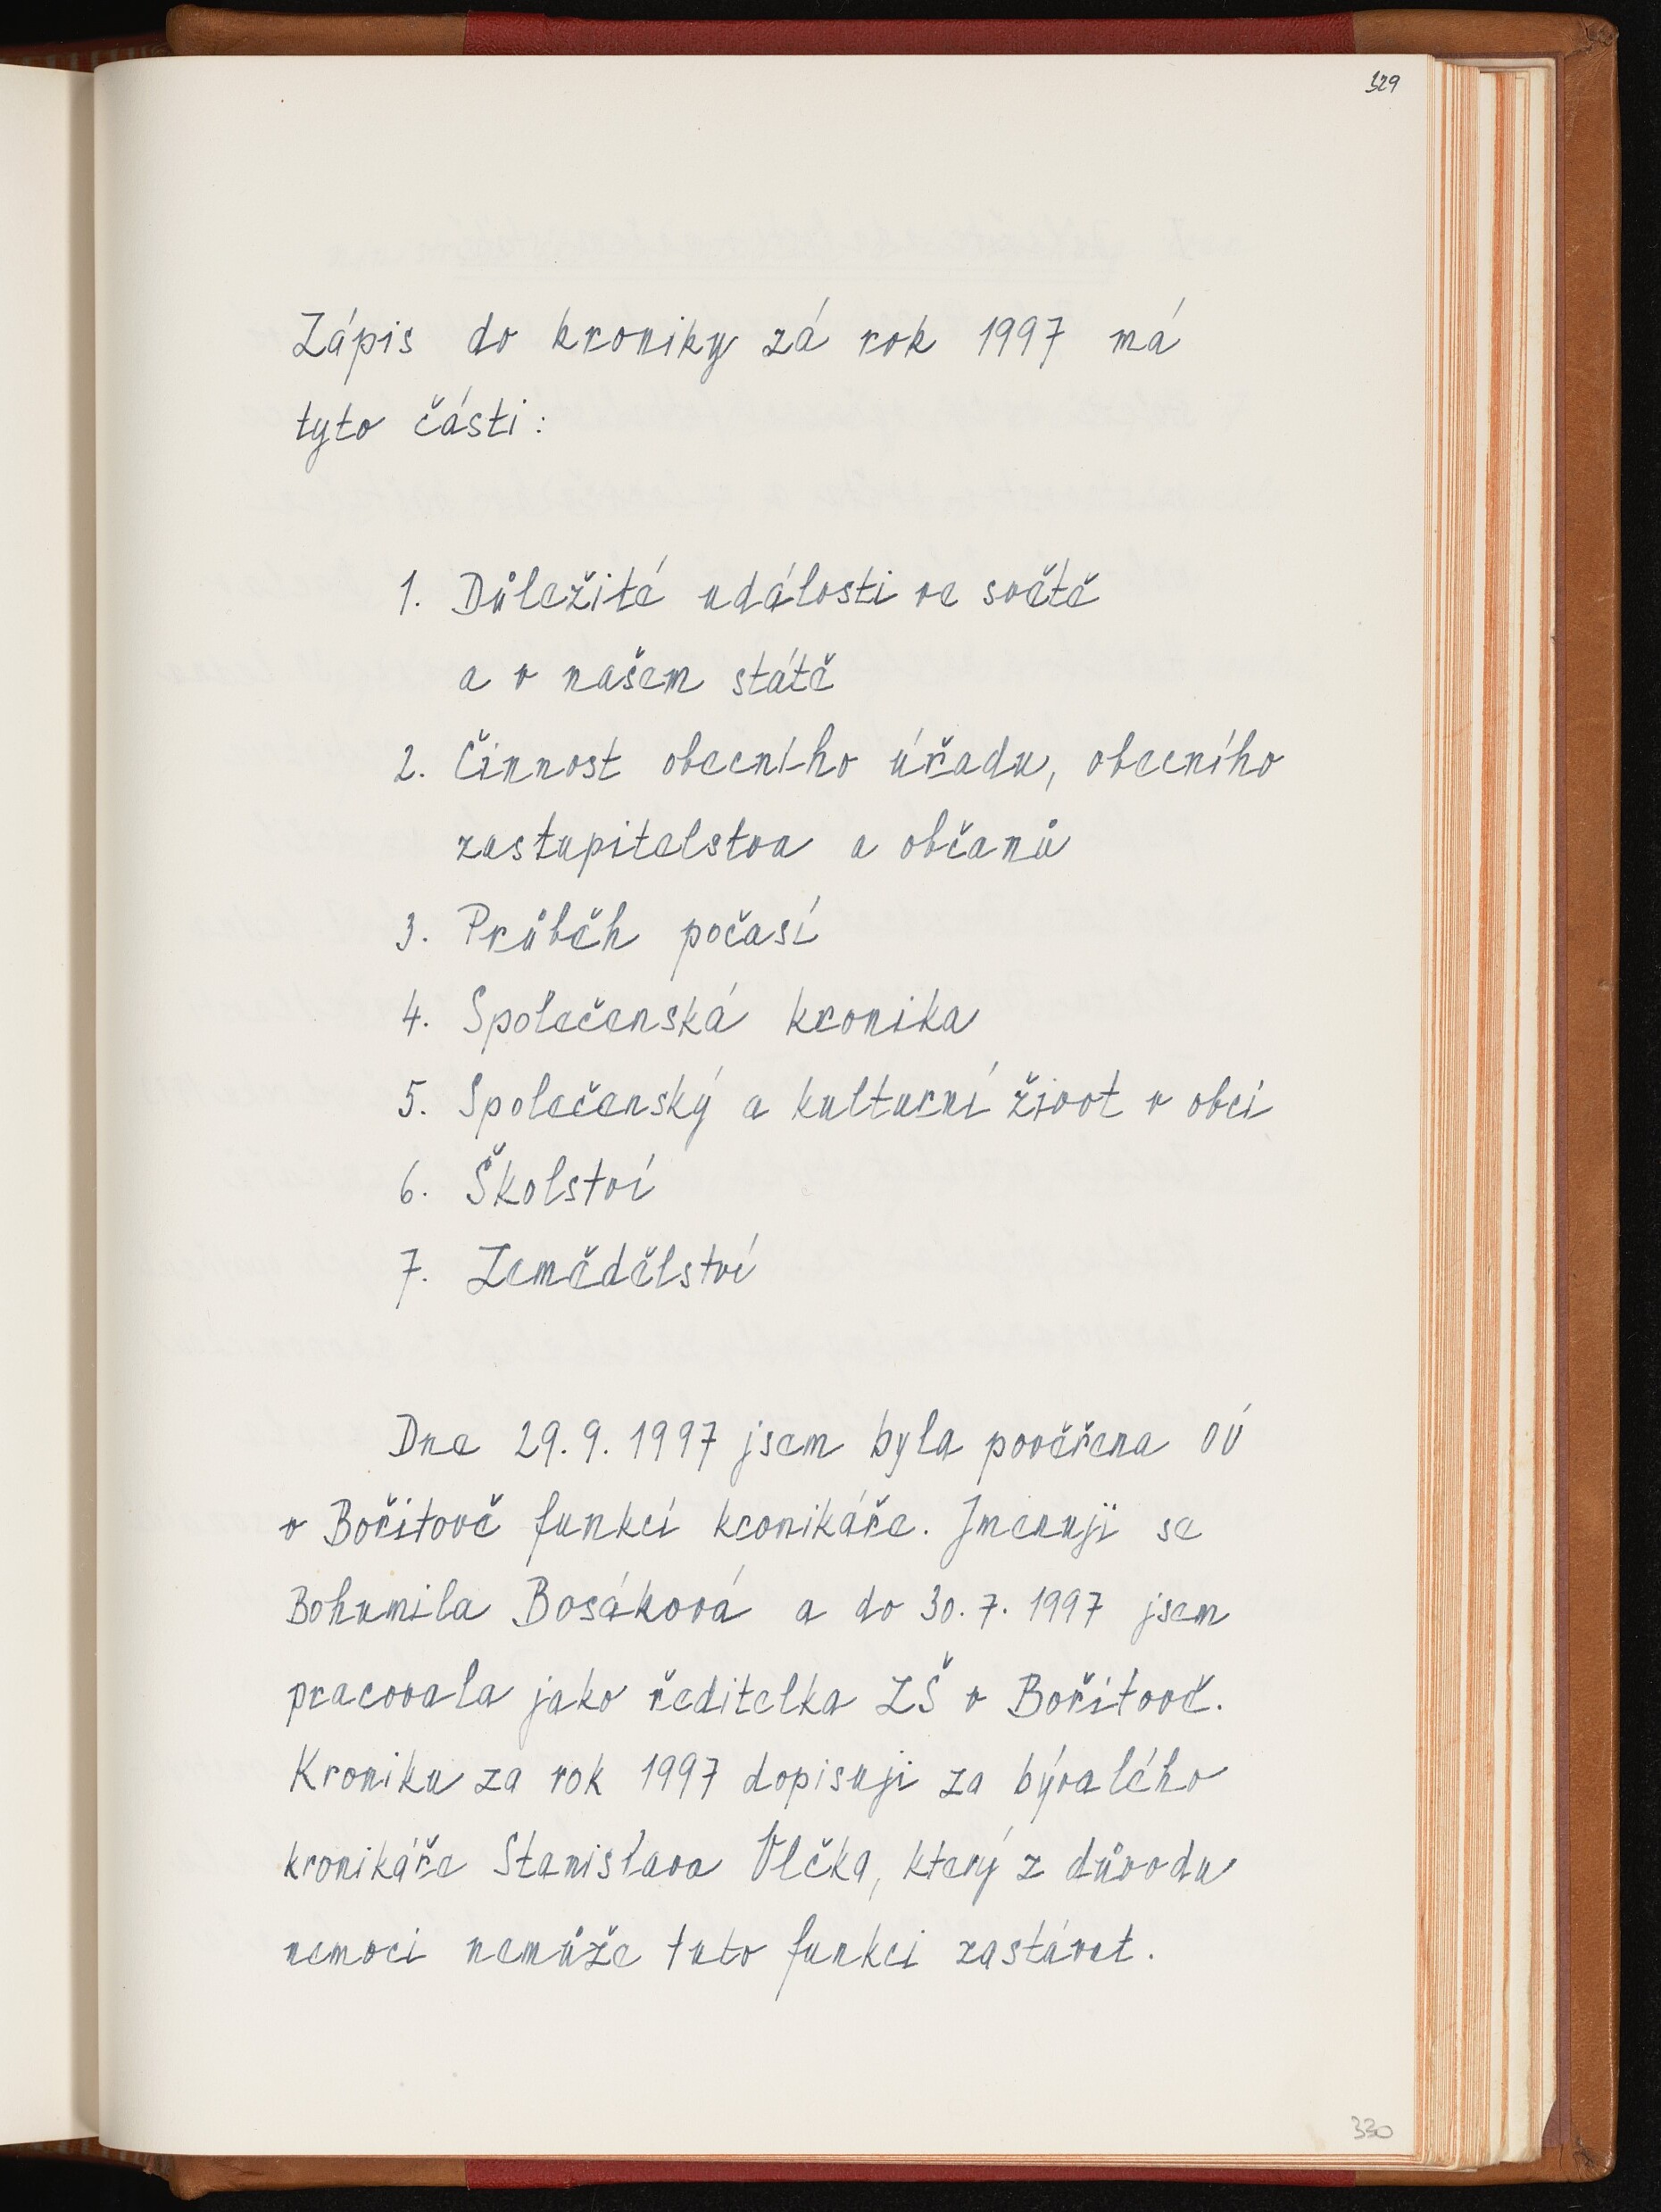 329
Zápis do kroniky zá rok 1997 má
tyto části:
1. Důležité události ve světě
a v našem státě
2. Činnost obecního úřadu, obecního
zastupitelstva a občanů
3. Průběh počasí
4. Společenská kronika
5. Společenský a kulturní život v obci
6. Školství
7. Zemědělství
Dne 29. 9. 1997 jsem byla pověřena OÚ
v Bořitově funkcí kronikáře. Jmenuji se
Bohumila Bosáková a do 30. 7. 1997 jsem
pracovala jako ředitelka ZŠ v Bořitově.
Kroniku za rok 1997 dopisuji za bývalého
kronikáře Stanislava Vlčka, který z důvodu
nemoci nemůže tuto funkci zastávat.
330